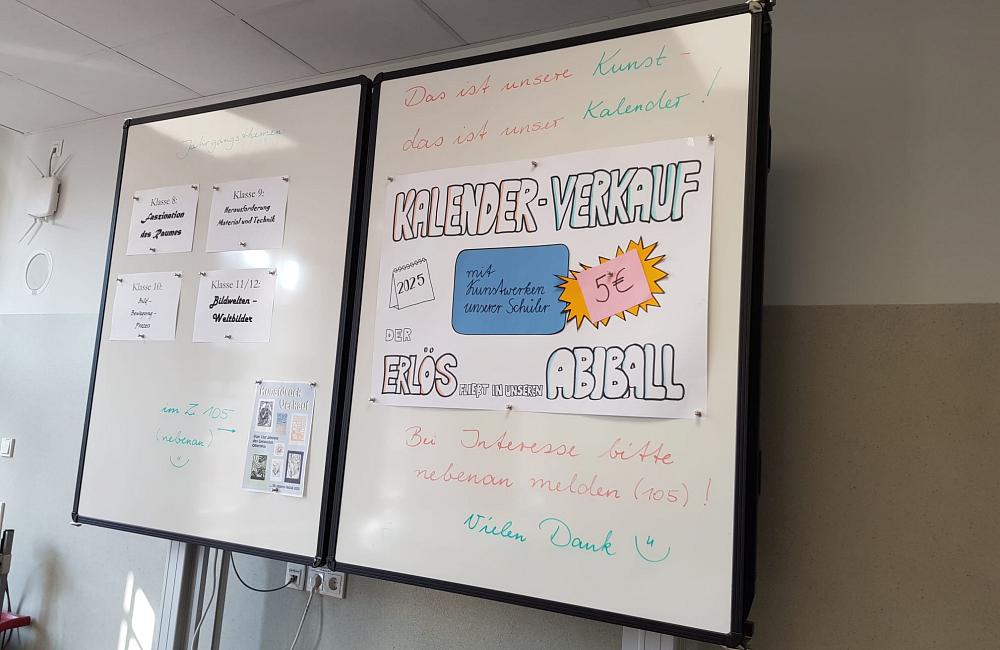 Jahrgangsthemen
Klasse 8:
Faszination
des Raumes
Klasse 9:
Herausforderung
Material und Technik
Klasse 10:
Bild -
Bewegung -
Prozess
Klasse 11/12:
Bildwelten -
Weltbilder
im Z. 105
(nebenan)
Kunstdruck
Verkauf
Das ist unsere Kunst -
das ist unser Kalender!
KALENDER-VERKAUF
2025
mit
Kunstwerken
unserer Schüler
5€
DER
ERLÖS FLIEßT IN UNSEREN ABIBALL
Bei Interesse bitte
nebenan melden (105)!
Vielen Dank